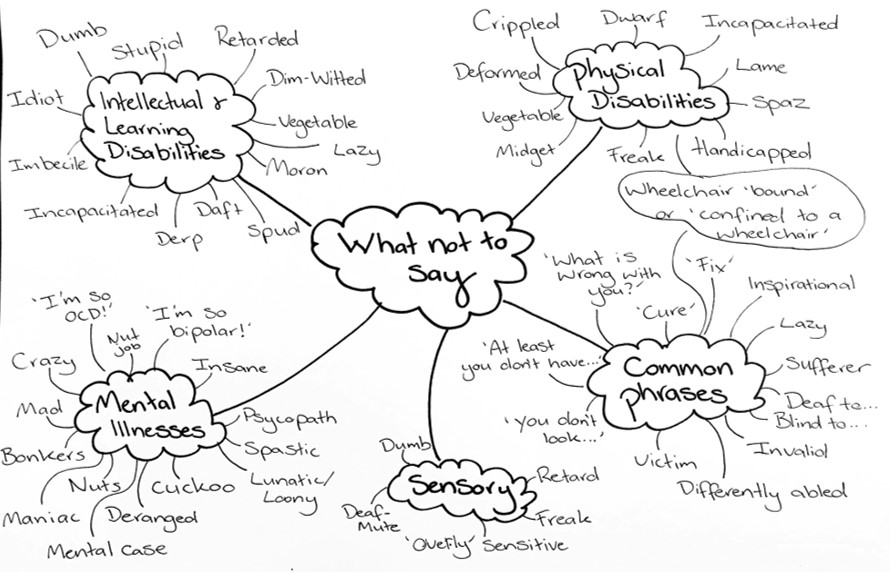 What not to
say
Intellectual &
Learning
Disabilities
Dumb
Stupid
Retarded
Dim-Witted
Vegetable
Lazy
Moron
Spud
Daft
Derp
Incapacitated
Imbecile
Idiot
Physical
Disabilities
Crippled
Dwarf
Incapacitated
Lame
Spaz
Handicapped
Freak
Midget
Vegetable
Deformed
Wheelchair 'bound'
or 'confined to a
wheelchair'
Common
phrases
'What is
wrong with
you?'
'Cure'
'Fix'
Inspirational
Lazy
Sufferer
Deaf to...
Blind to...
Invalid
Differently abled
Victim
'You don't
look...'
'At least
you don't have...'
Sensory
Dumb
Retard
Freak
'Overly' Sensitive
Deaf-
Mute
Mental
Illnesses
'I'm so
OCD!'
Nut
job
'I'm so
bipolar!'
Insane
Psycopath
Spastic
Lunatic/
Loony
Cuckoo
Deranged
Mental case
Nuts
Maniac
Bonkers
Mad
Crazy